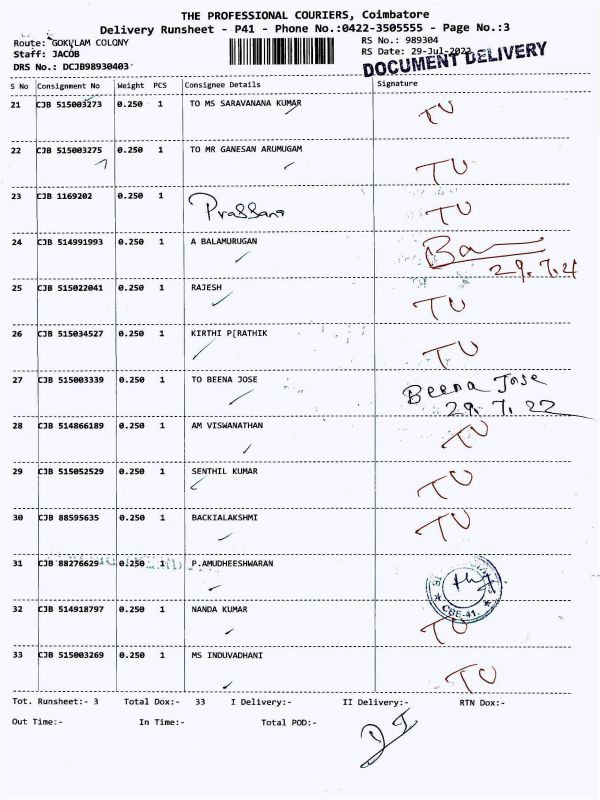 THE PROFESSIONAL COURIERS, Coimbatore
Delivery Runsheet - P41 - Phone No.:0422-3505555 - Page No.:3
Route: GOKULAM COLONY RS No.: 989304
Staff: JACOB RS Date: 29-Jul-2022
DRS No.: DCJB98930403 DOCUMENT DELIVERY
S No Consignment No Weight PCS Consignee Details Signature
21 CJB 515003273 0.250 1 TO MS SARAVANANA KUMAR TU
22 CJB 515003275 0.250 1 TO MR GANESAN ARUMUGAM TU
23 CJB 1169202 0.250 1 Prassana TU
24 CJB 514991993 0.250 1 A BALAMURUGAN Ba
29.7.2
25 CJB 515022041 0.250 1 RAJESH TU
26 CJB 515034527 0.250 1 KIRTHI P[RATHIK TU
27 CJB 515003339 0.250 1 TO BEENA JOSE Beena Jose
29.7.22
28 CJB 514866189 0.250 1 AM VISWANATHAN TU
29 CJB 515052529 0.250 1 SENTHIL KUMAR TU
30 CJB 88595635 0.250 1 BACKIALAKSHMI TU
31 CJB 88276629 0.250 1 P.AMUDHEESHWARAN
CBE-41.
32 CJB 514918797 0.250 1 NANDA KUMAR TU
33 CJB 515003269 0.250 1 MS INDUVADHANI TU
Tot. Runsheet:- 3 Total Dox:- 33 I Delivery:- II Delivery:- RTN Dox:-
Out Time:- In Time:- Total POD:-